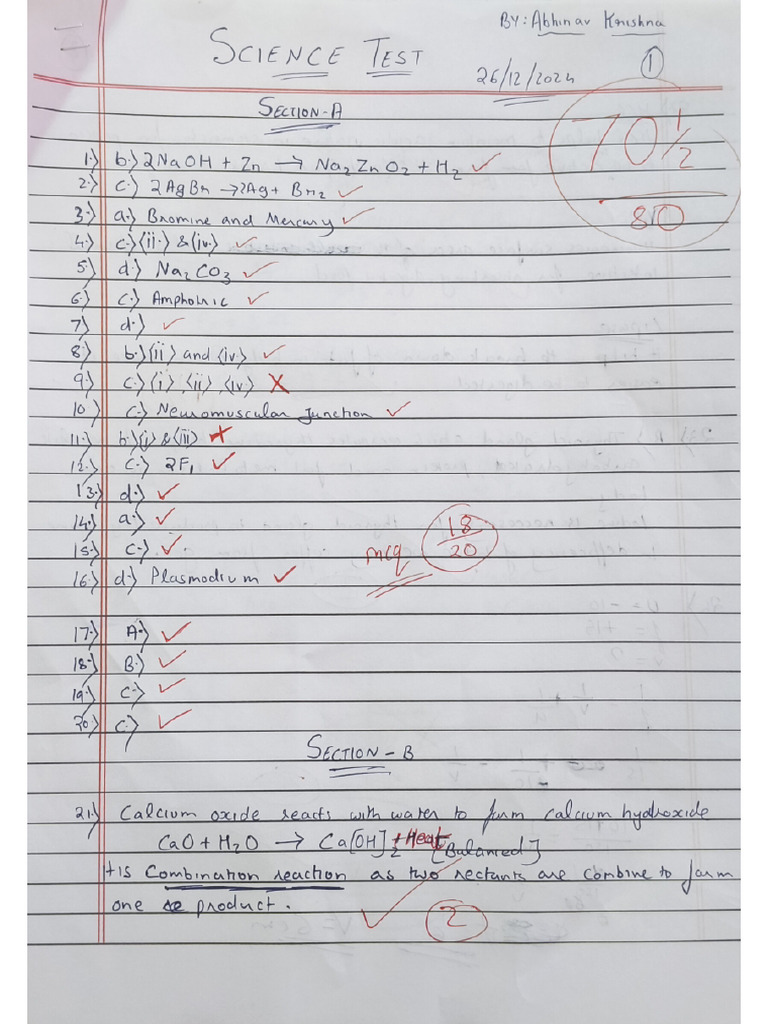 BY: Abhinav Krishna
SCIENCE TEST
26/12/2024
1
SECTION-A
70 1/2
80
1.) b.) 2NaOH + Zn → Na2ZnO2 + H2
2.) c.) 2AgBr → 2Ag + Br2
3.) a.) Bromine and Mercury
4.) c.) (ii.) & (iv.)
5.) d.) Na2CO3
6.) c.) Amphoteric
7.) d.)
8.) b.) (ii) and (iv)
9.) c.) (i), (ii), (iv)
10.) c.) Neuromuscular Junction
11.) b.) (i) & (iii)
12.) c.) 2F,
13.) d.)
14.) a.)
15.) c.)
mcq 18/20
16.) d.) Plasmodium
17.) A.)
18.) B.)
19.) C.)
20.) C.)
SECTION-B
21.) Calcium oxide reacts with water to form calcium hydroxide
CaO + H2O → Ca[OH]2 + Heat [Balanced]
It is Combination reaction as two rectants are combine to form
one product.
2